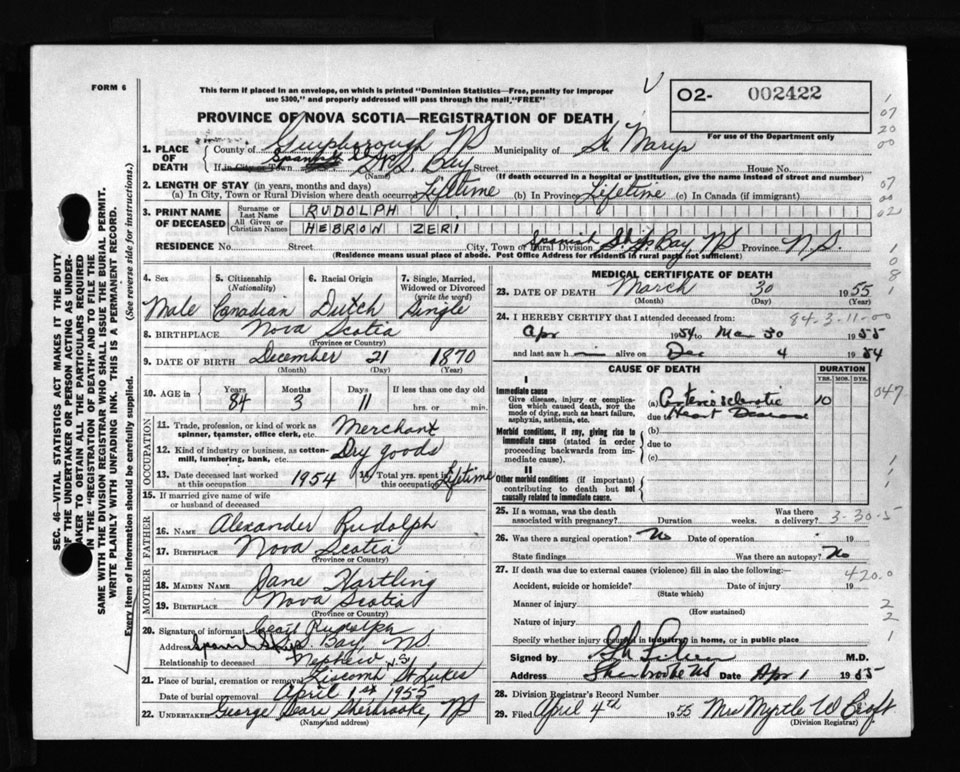 FORM 6
This form if placed in an envelope, on which is printed "Dominion Statistics—Free, penalty for improper
use $300," and properly addressed will pass through the mail "FREE"
02- 002422
For use of the Department only
PROVINCE OF NOVA SCOTIA—REGISTRATION OF DEATH
1. PLACE OF DEATH County of Guysborough NS Municipality of St Marys
If in City or Town Spanish S. Bay Street House No.
(Name) (If death occurred in a hospital or institution, give the name instead of street and number)
2. LENGTH OF STAY (in years, months and days)
(a) In City, Town or Rural Division where death occurred Lifetime (b) In Province Lifetime (c) In Canada (if immigrant)
3. PRINT NAME OF DECEASED Surname or Last Name RUDOLPH
All Given or Christian Names HEBRON ZERI
RESIDENCE No. Street City, Town or Rural Division Spanish Ship Bay, NS Province N.S.
(Residence means usual place of abode. Post Office Address for residents in rural parts not sufficient)
4. Sex 5. Citizenship (Nationality) 6. Racial Origin 7. Single, Married, Widowed or Divorced (write the word)
Male Canadian Dutch Single
8. BIRTHPLACE Nova Scotia
(Province or Country)
9. DATE OF BIRTH December 21 1870
(Month) (Day) (Year)
10. AGE in Years Months Days If less than one day old
84 3 11 hrs. or min.
OCCUPATION
11. Trade, profession, or kind of work as spinner, teamster, office clerk, etc. Merchant
12. Kind of industry or business, as cotton-mill, lumbering, bank, etc. Dry goods
13. Date deceased last worked at this occupation 1954 14. Total yrs. spent in this occupation Lifetime
15. If married give name of wife or husband of deceased
FATHER
16. NAME Alexander Rudolph
17. BIRTHPLACE Nova Scotia
(Province or Country)
MOTHER
18. MAIDEN NAME Jane Hartling
19. BIRTHPLACE Nova Scotia
(Province or Country)
20. Signature of informant Cecil Rudolph
Address Spanish Ship Bay, NS.
Relationship to deceased Nephew
21. Place of burial, cremation or removal Liscomb St Lukes N.S
Date of burial or removal April 1st 1955
22. UNDERTAKER George Sherbrooke, NS
(Name and address)
MEDICAL CERTIFICATE OF DEATH
23. DATE OF DEATH March 30 1955
(Month) (Day) (Year)
24. I HEREBY CERTIFY that I attended deceased from: 84-3-11-00
Apr 1954 to Mar 30 1955
and last saw h alive on Dec 4 1954
CAUSE OF DEATH DURATION
YRS. MOS. DYS.
I
Immediate cause
Give disease, injury or complication which caused death, not the mode of dying, such as heart failure, asphyxia, asthenia, etc.
(a) Arteriosclerotic 10
due to Heart Disease
Morbid conditions, if any, giving rise to immediate cause (stated in order proceeding backwards from immediate cause).
(b)
due to
(c)
II
Other morbid conditions (if important) contributing to death but not causally related to immediate cause.
25. If a woman, was the death associated with pregnancy? Duration weeks. Was there a delivery? 3-30-5
26. Was there a surgical operation? No Date of operation 19
State findings Was there an autopsy? No
27. If death was due to external causes (violence) fill in also the following:— 420.0
Accident, suicide or homicide? Date of injury 19
(State which)
Manner of injury
(How sustained)
Nature of injury
Specify whether injury occurred in industry, in home, or in public place
Signed by M.D.
Address Sherbrooke NS Date Apr 1 1955
28. Division Registrar's Record Number
29. Filed April 4th 1955 Mrs Myrtle W Croft
(Division Registrar)
047
SEC. 46—VITAL STATISTICS ACT MAKES IT THE DUTY
OF THE UNDERTAKER OR PERSON ACTING AS UNDERTAKER TO OBTAIN ALL THE PARTICULARS REQUIRED
IN THE "REGISTRATION OF DEATH" AND TO FILE THE
SAME WITH THE DIVISION REGISTRAR WHO SHALL ISSUE THE BURIAL PERMIT.
WRITE PLAINLY WITH UNFADING INK. THIS IS A PERMANENT RECORD.
Every item of information should be carefully supplied. (See reverse side for instructions.)